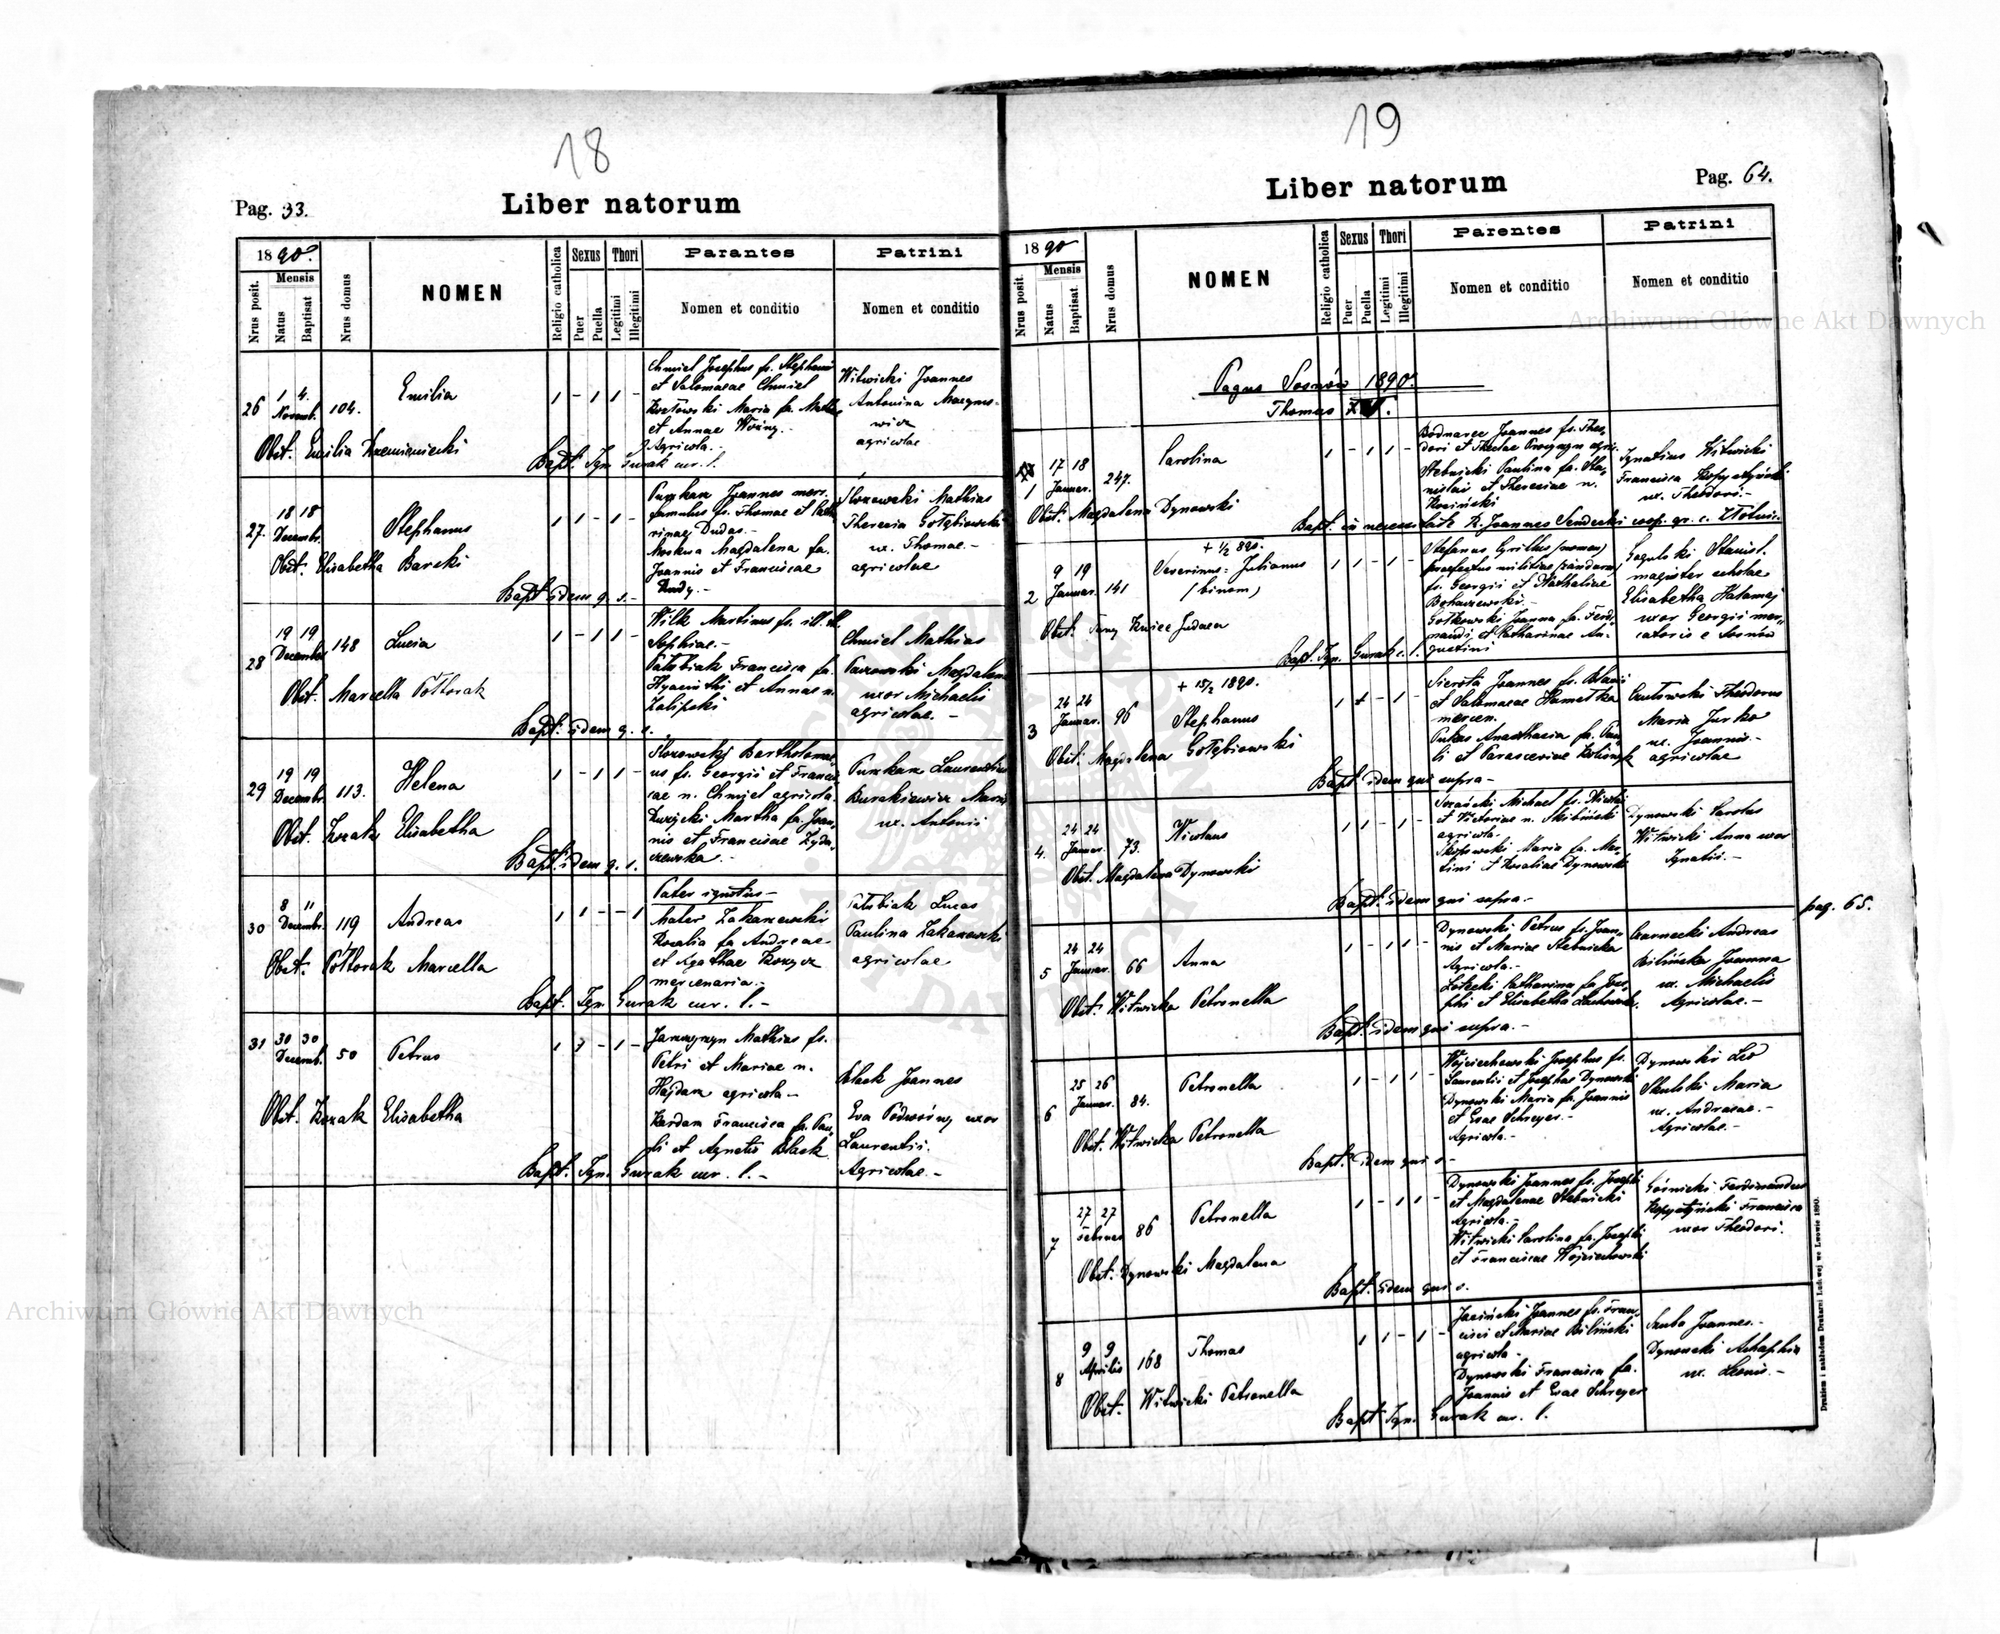 18
Pag. 33.
Liber natorum
1890.
Mensis
Nrus posit.
Natus
Baptisat
Nrus domus
NOMEN
Religio catholica
Sexus
Puer
Puella
Thori
Legitimi
Illegitimi
Parantes
Nomen et conditio
Patrini
Nomen et conditio
26
1 4.
Novemb.
104.
Emilia
1 - 1 1 -
Chmiel Josephus fs. Stephani
et Salomeae Chmiel
Maria fa.
et Annae
Agricola.
Witwicki Joannes
Antonina
agricolae
Obst. Emilia Krzemieniecki
Bapt. Ign. Gurak cur. l.
27
18 18
Decemb.
Stephanus
1 1 - 1 -
Joannes merc.
famulus fs. Thomae et
rinae Dudas.-
Magdalena fa.
Joannis et Franciscae
Mathias
Theresia Gołębiowski
ux. Thomae.-
agricolae
Obst. Elisabetha Barski
Bapt. idem q. s.-
28
19 19
December
148
Lucia
1 - 1 1 -
Wilk Martinus fs. ill.
Sophiae.-
Francisca fa.
Hyacinthi et Annae n.
Zalipski
Chmiel Mathias
Magdalena
uxor Michaelis
agricolae.-
Obst. Marcella Półtorak
Bapt. idem q. s.
29
19 19
Decemb.
113.
Helena
1 - 1 1 -
Bartholomae-
us fs. Georgii et Francis-
cae n. Chmiel agricola.
Martha fa. Joan-
nis et Franciscae Zyda-
czewska.-
Laurentius
Burakiewicz Maria
ux. Antonii
Obst. Kozak Elisabetha
Bapt. idem q. s.
30
8 11
Decemb.
119
Andreas
1 1 - - 1
Pater ignotus-
Mater Zakarzewski
Rosalia fa Andreae
et Agathae
mercenaria.-
Lucas
Paulina Zakarzewski
agricolae
Obst. Półtorak Marcella
Bapt. Ign Gurak cur. l.-
31
30 30
Decemb.
50
Petrus
1 1 - 1 -
Mathias fs.
Petri et Mariae n.
Hajdam agricola-
Kardam Francisca fa. Pau-
li et Agnetis Black
Black Joannes
Eva Podwórny uxor
Laurentii.
Agricolae.-
Obst. Kozak Elisabetha
Bapt. Ign. Gurak cur. l.-
19
Liber natorum
Pag. 64.
1890
Mensis
Nrus posit.
Natus
Baptisat.
Nrus domus
NOMEN
Religio catholica
Sexus
Puer
Puella
Thori
Legitimi
Illegitimi
Parentes
Nomen et conditio
Patrini
Nomen et conditio
Pagus Sosnów 1890.
Thomus
1
17 18
Januar.
247.
Carolina
1 - 1 1 -
Bodnarec Joannes fs. Theo-
dori et Theclae agric.
Stebnicki Paulina fa. Sta-
nislai et Theresiae n.
Kosiński
Ignatius Witwicki
Francisca
ux. Theodori.-
Obst. Magdalena Dynowski
Bapt. in necessitate R. Joannes Sendecki coop. gr. c. Złotnic.
2
9 19
Januar.
141
+ 1/2 890.
Severinus-Julianus
(binom)
1 1 - 1 -
Stefanus Cyrillus (nomen)
praefectus militiae
fs. Georgii et Nathaliae
Bohaczewski.-
Gołkowski Joanna fa. Ferdi-
nandi et Catharinae Au-
gustini
Stanisl.
magister scholae
Elisabetha Hałamaj
uxor Georgii mer-
catoris e Sosnów
Obst. Judaea
Bapt. Ign. Gurak c. l.
3
24 24
Januar.
96
+ 15/2 1890.
Stephanus
1 + - 1 -
Sierota Joannes fs. Blasii
et Salomeae
mercen.
Pukas Anasthasia fa. Pau-
li et Parasceviae
Theodorus
Maria Jurko
ux. Joannis-
agricolae
Obst. Magdalena Gołębiowski
Bapt. idem qui supra-
4.
24 24
Januar.
73.
Nicolaus
1 1 - 1 -
Michael fs. Nicolai
et Victoriae n. Skibiński
agricola.
Maria fa. Mar-
tini et Rosaliae Dynowski
Dynowski Carolus
Witwicki Anna uxor
Ignatii.-
Obst. Magdalena Dynowski
Bapt. idem qui supra.-
pag. 65.
5
24 24
Januar.
66
Anna
1 - 1 1 -
Dynowski Petrus fs. Joan-
nis et Mariae Stebnicka
Agricola.-
Catharina fa Jose-
phi et Elisabetha
Czarnecki Andreas
Bilińska Joanna
ux. Michaelis
Agricolae.-
Obst. Witwicka Petronella
Bapt. idem qui supra.-
6
25 26
Januar.
84.
Petronella
1 - 1 1 -
Wojciechowski Josephus fs.
Laurentii et Josephae Dynowski
Dynowski Maria fa. Joannis
et Evae Schreyer.-
Agricola.-
Dynowski Leo
Skulski Maria
ux. Andreae.-
Agricolae.-
Obst. Witwicka Petronella
Bapt. idem qui s-
7
27 27
Februar
86
Petronella
1 - 1 1 -
Dynowski Joannes fs. Josephi
et Magdalenae Stebnicki
Agricola.-
Witwicki Carolina fa. Josephi
et Franciscae Wojciechowski
Górnicki Ferdinandus
Francisca
uxor Theodori.
Obst. Dynowski Magdalena
Bapt. idem qui s.
8
9 9
Aprilis
168
Thomas
1 1 - 1 -
Jasiński Joannes fs. Fran-
cisci et Mariae Biliński
agricola-
Dynowski Francisca fa.
Joannis et Evae Schreyer
Skuba Joannes.-
Dynowski
ux. Leonis.-
Obst. Witwicki Petronella
Bapt Ign. Gurak cur. l.
Drukiem i nakładem Drukarni Ludowej we Lwowie 1890.
Archiwum Główne Akt Dawnych
Archiwum Główne Akt Dawnych